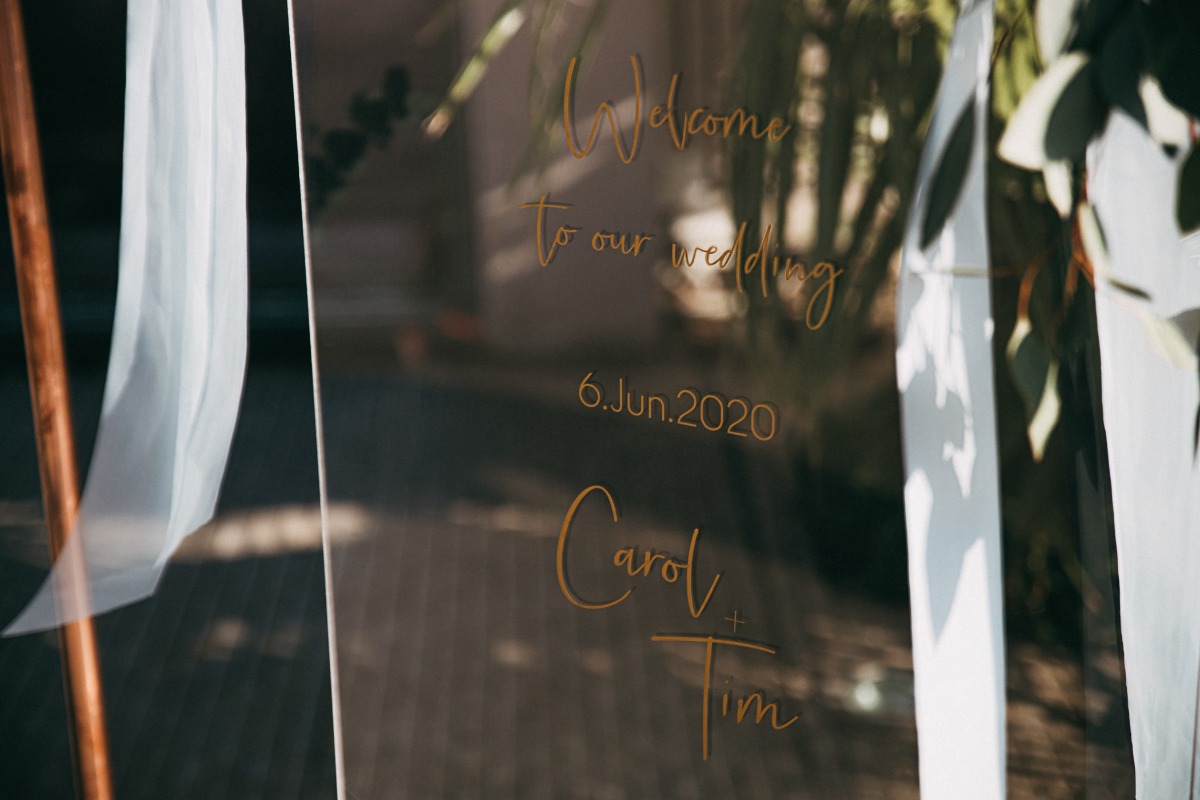 Welcome
to our wedding
6.Jun.2020
Carol
+
Tim